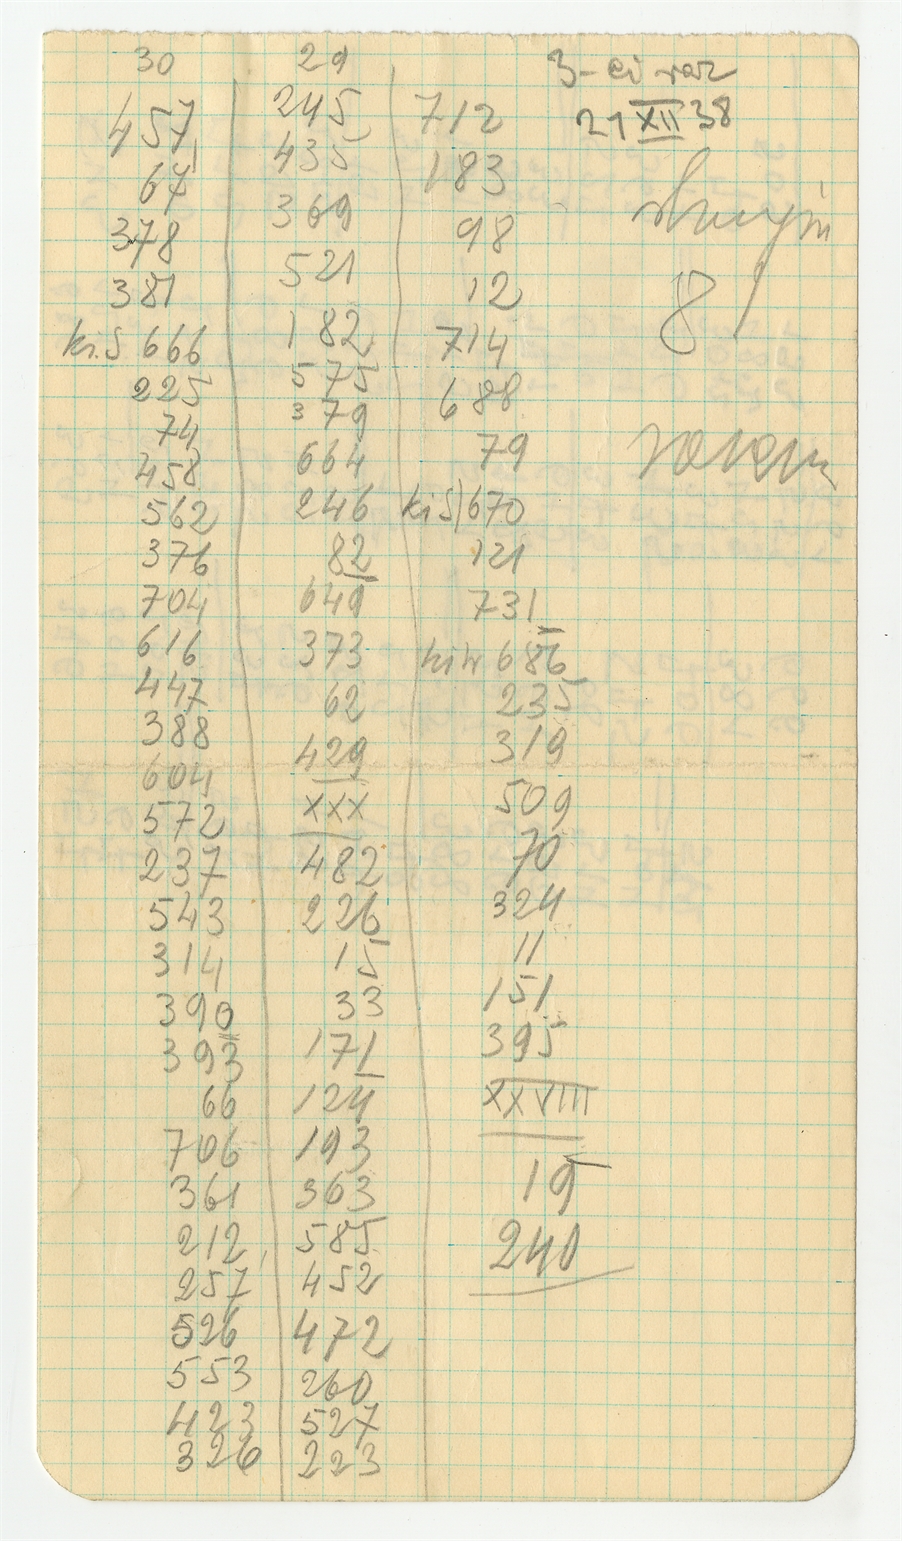 30
457
67
378
381
kiś 666
225
74
458
562
376
704
616
447
388
604
572
237
543
314
390
393
66
706
361
212
257
526
553
423
326
29
245
435
369
521
182
575
379
664
246
82
649
373
62
429
XXX
482
226
15
33
171
124
193
363
585
452
472
260
527
223
712
183
98
12
714
688
79
kiś 670
121
731
686
235
319
509
70
324
11
151
395
XXVIII
15
240
3-ci raz
21 XII 38
8
razem